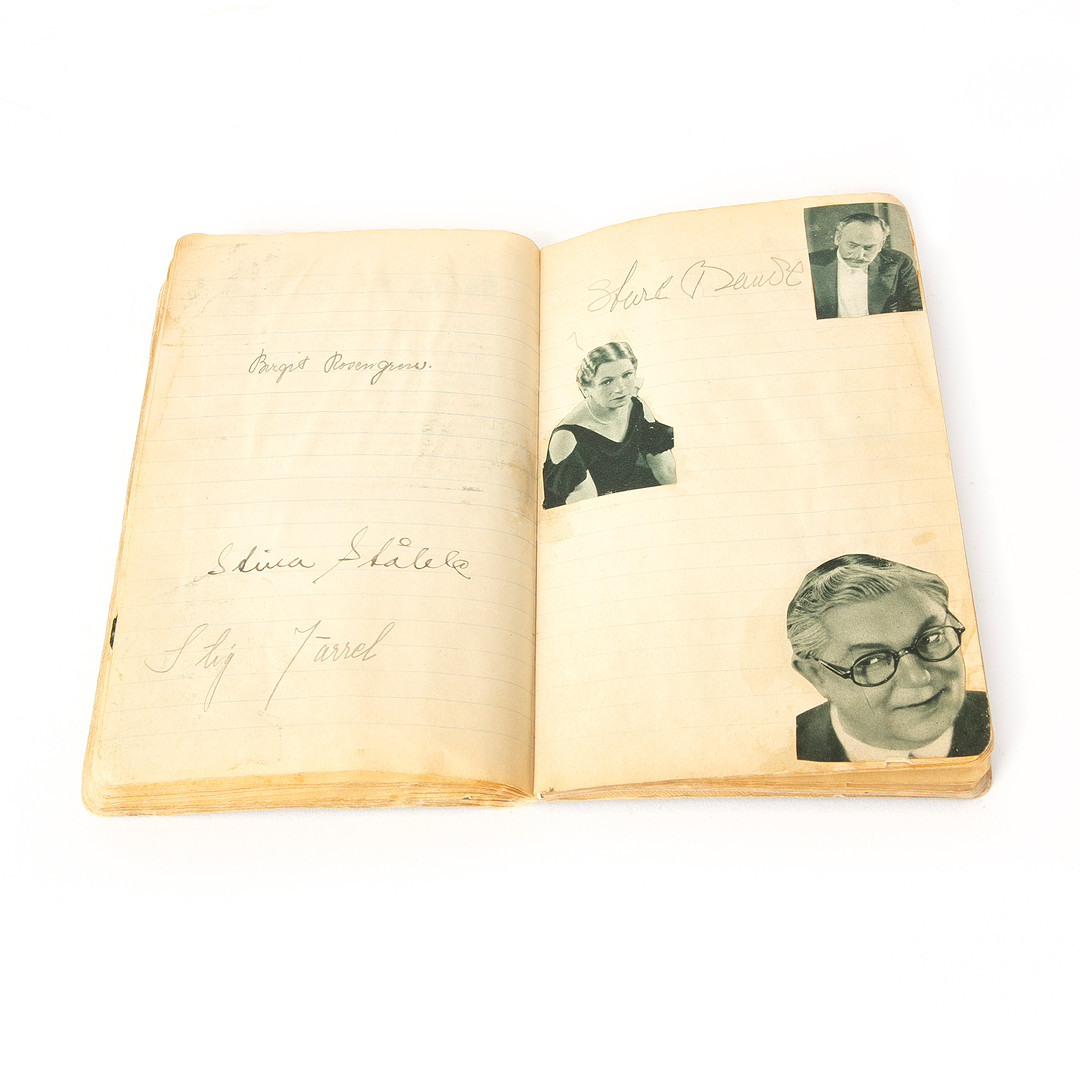 Birgit Rosengren.
Stina Ståhle
Stig Järrel
Sture Baude